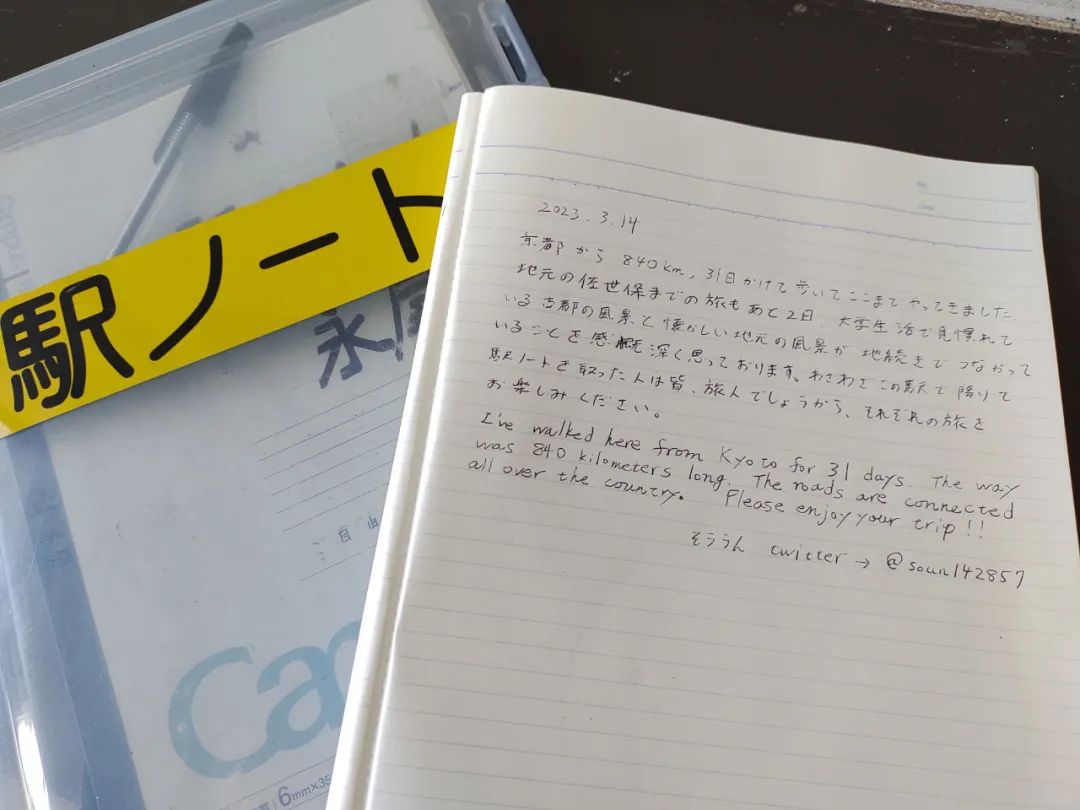 駅ノート
永尾
ご自由
Campus
Ca
6mm×35
No.
Date
2023.3.14
京都から840km,31日かけて歩いてここまでやってきました。
地元の佐世保までの旅もあと2日。大学生活で見慣れて
いる古都の風景と懐かしい地元の風景が地続きでつながって
いることを感慨深く思っております。わざわざこの駅で降りて
駅ノートを取った人は皆、旅人でしょうから、それぞれの旅を
お楽しみください。
I've walked here from Kyoto for 31 days. The way
was 840 kilometers long. The roads are connected
all over the country. Please enjoy your trip!!
そううん twitter → @soun142857